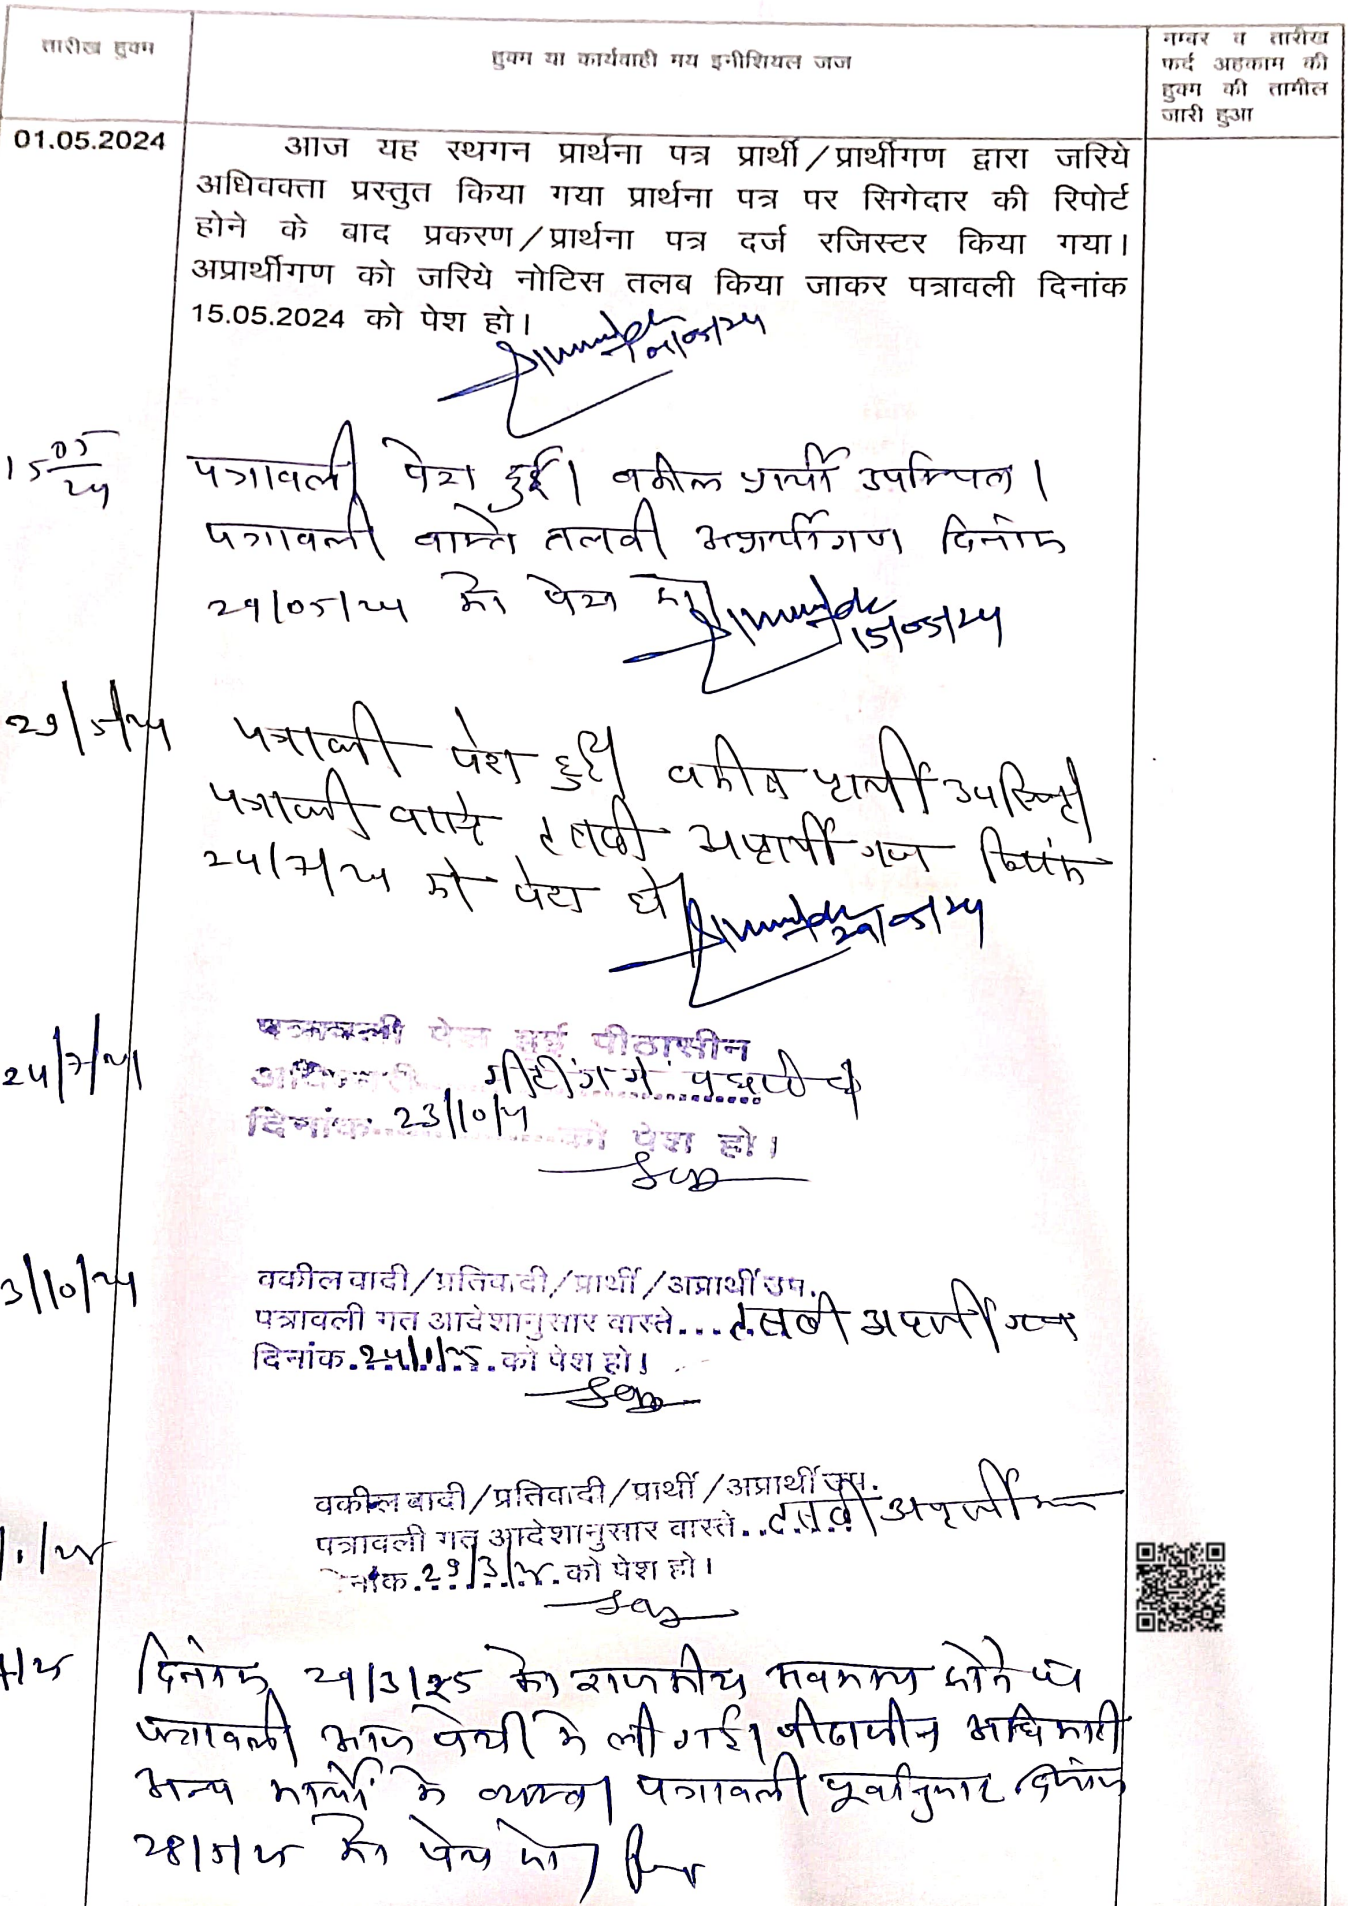 तारीख हुक्म
हुक्म या कार्यवाही मय इनीशियल जज
नम्बर व तारीख
फर्द अहकाम की
हुक्म की तामील
जारी हुआ
01.05.2024
आज यह स्थगन प्रार्थना पत्र प्रार्थी/प्रार्थीगण द्वारा जरिये
अधिवक्ता प्रस्तुत किया गया प्रार्थना पत्र पर सिगेदार की रिपोर्ट
होने के बाद प्रकरण/प्रार्थना पत्र दर्ज रजिस्टर किया गया।
अप्रार्थीगण को जरिये नोटिस तलब किया जाकर पत्रावली दिनांक
15.05.2024 को पेश हो।
01/05/24
15 05/24
पत्रावली पेश हुई। वकील प्रार्थी उपस्थित।
पत्रावली वास्ते तलबी अप्रार्थीगण दिनांक
29/05/24 को पेश हो।
15/05/24
29/5/24
पत्रावली पेश हुई वकील प्रार्थी उपस्थित।
पत्रावली वास्ते तलबी अप्रार्थीगण दिनांक
24/7/24 को पेश हो।
29/05/24
24/7/24
पत्रावली पेश हुई पीठासीन
अधिकारी मीटींग में
दिनांक 23/10/24 को पेश हो।
3/10/24
वकील वादी/प्रतिवादी/प्रार्थी/अप्रार्थी उप.
पत्रावली गत आदेशानुसार वास्ते...तलबी अप्रार्थीगण
दिनांक.24/1/25.को पेश हो।
/1/25
वकील वादी/प्रतिवादी/प्रार्थी/अप्रार्थी उप.
पत्रावली गत आदेशानुसार वास्ते..तलबी अप्रार्थीगण
नांक.29/3/25.को पेश हो।
/25
दिनांक 29/3/25 को राजकीय अवकाश होने से
पत्रावली आज पेशी में ली गई। पीठासीन अधिकारी
अन्य कार्यों में व्यस्त। पत्रावली पूर्वानुसार दिनांक
28/5/25 को पेश हो।